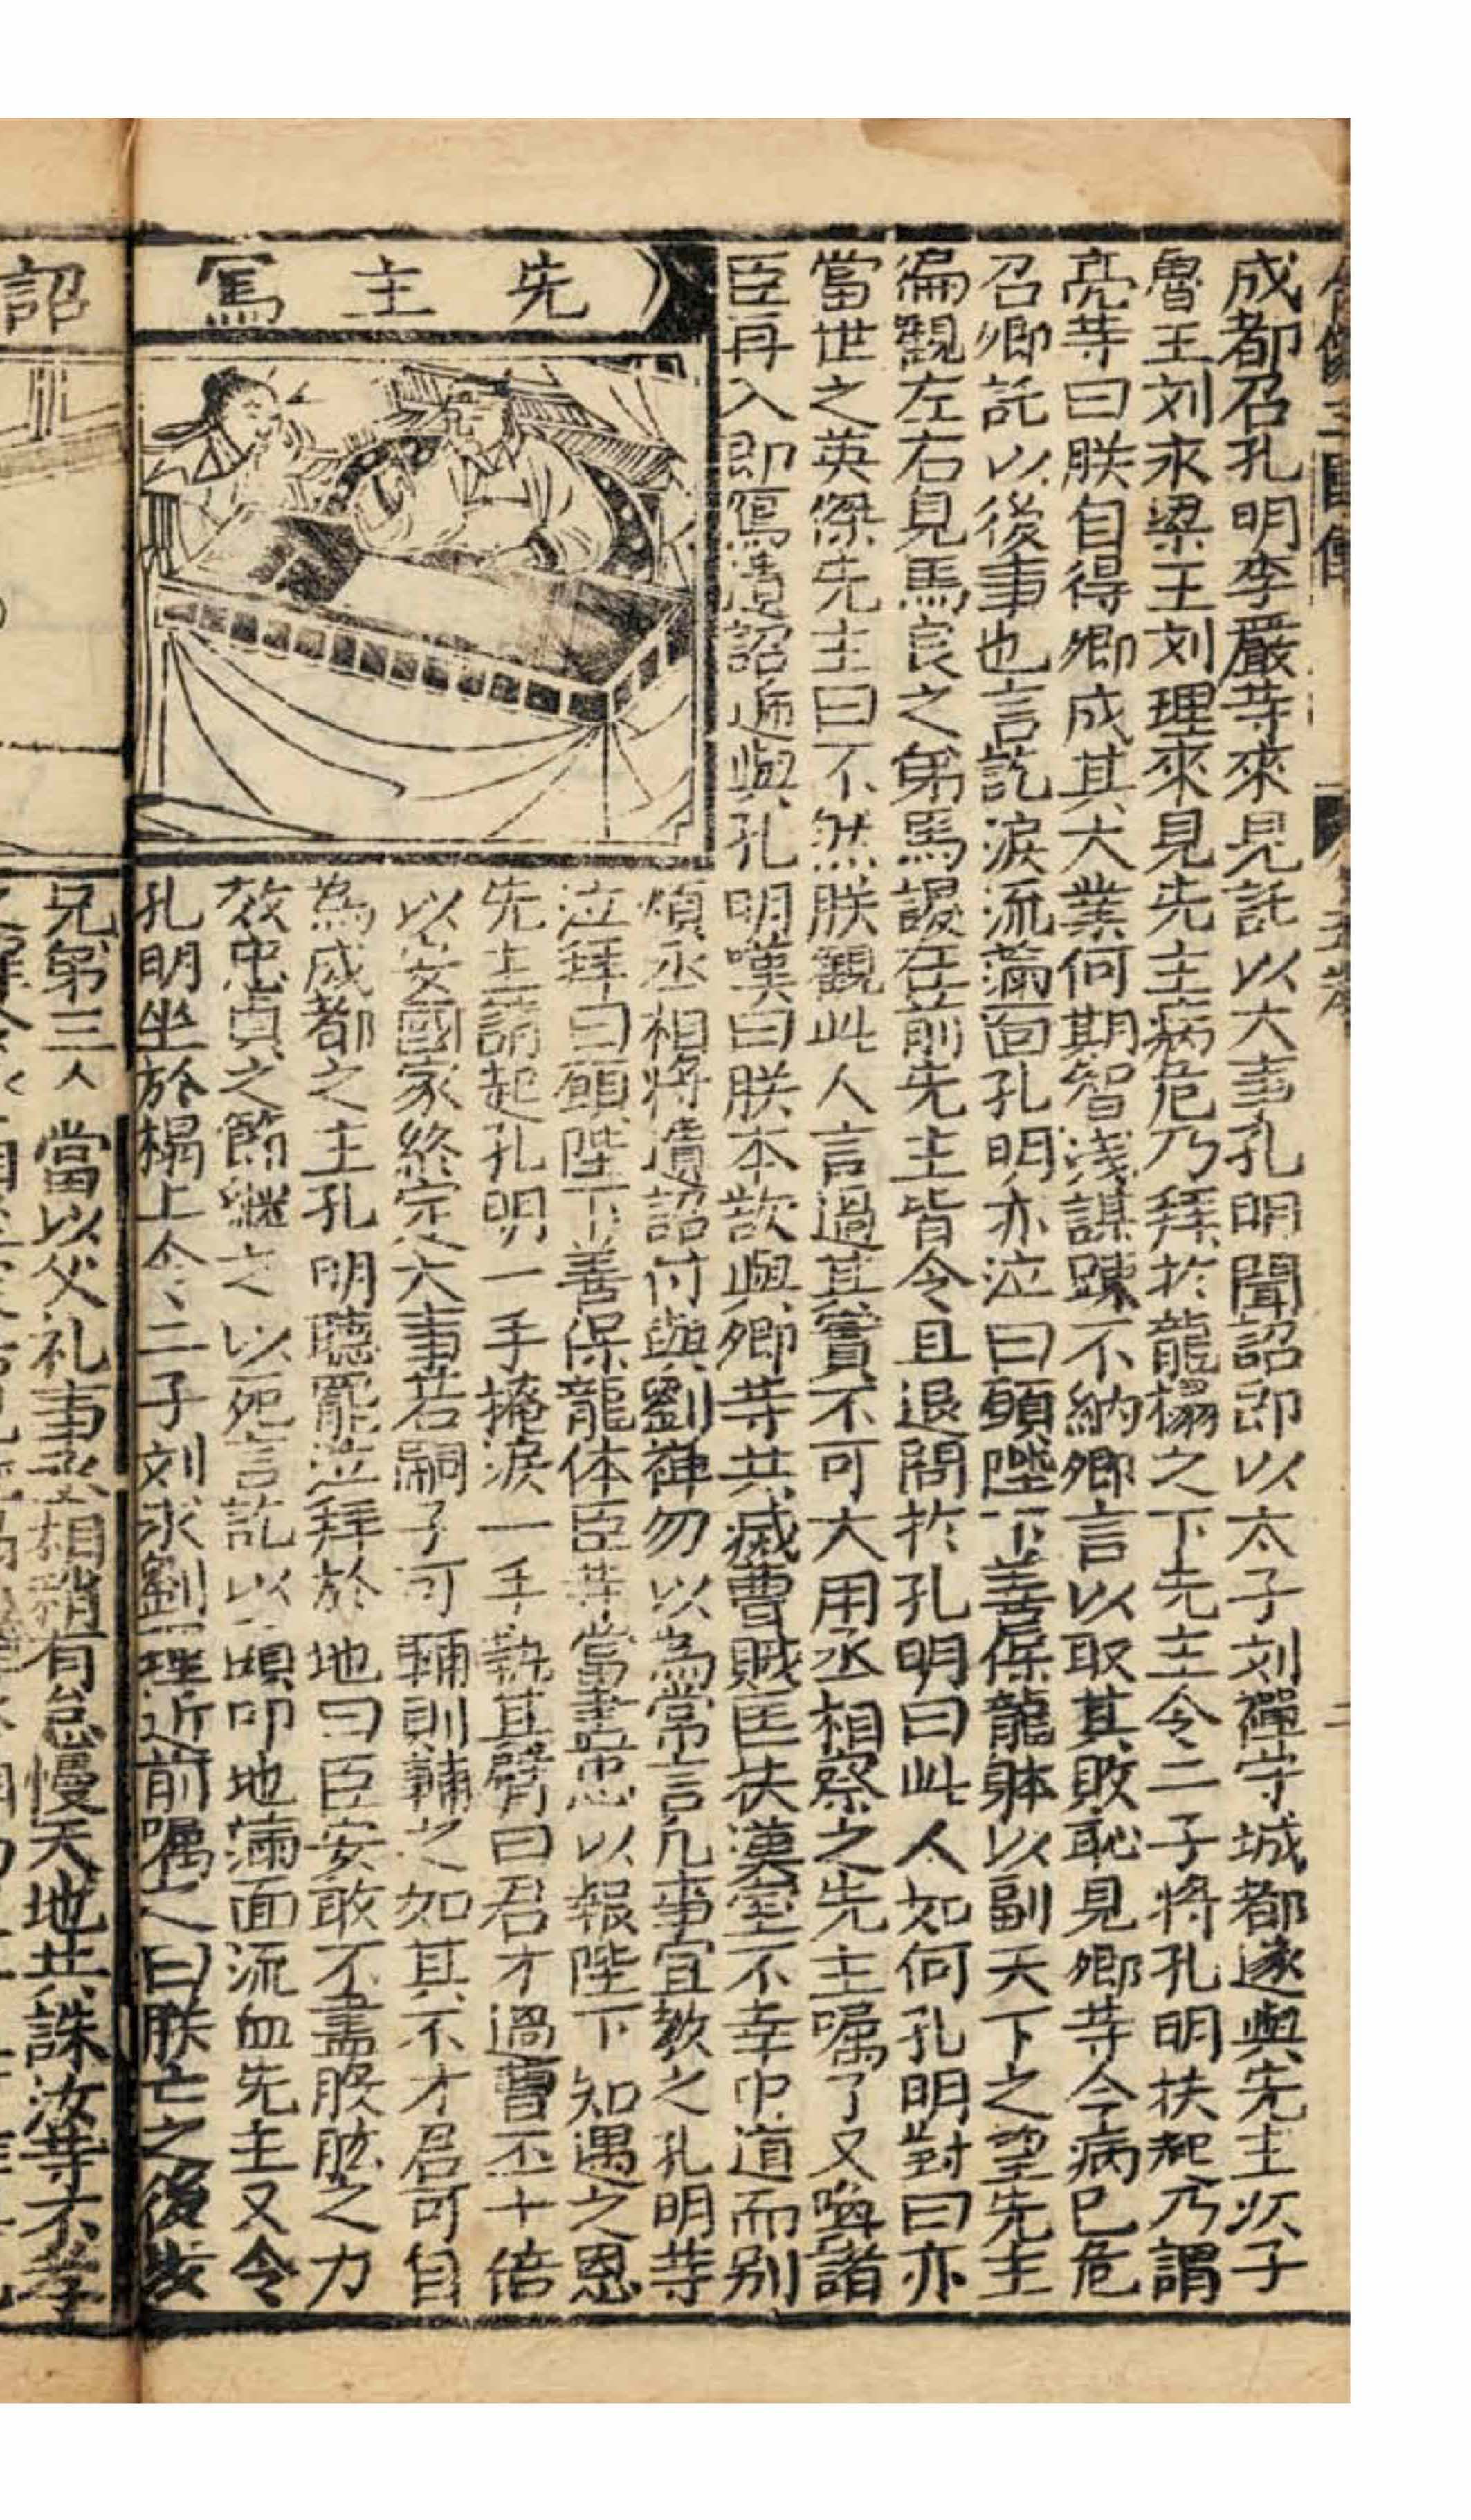 成都召孔明李嚴䓁來見託以大事孔明聞詔即以太子刘禪守城都遂與先主次子
魯王刘永梁王刘理來見先主病危乃拜於龍榻之下先主令二子將孔明扶起乃謂
亮䓁曰朕自得卿成其大業何期智淺謀踈不納卿言以取其敗恥見卿䓁今病已危
召卿託以後事也言訖淚流滿面孔明亦泣曰願陛下善保龍躰以副天下之望先主
徧觀左右見馬良之弟馬謖在前先主皆令且退問於孔明曰此人如何孔明對曰亦
當世之英傑先主曰不然朕觀此人言過其實不可大用丞相察之先主嘱了又喚諸
臣再入即寫遺詔逓與孔明嘆曰朕本欲與卿䓁共滅曹賊匡扶漢室不幸中道而别
先主寫
煩丞相將遺詔付與劉禅勿以為常言凡事宜教之孔明䓁
泣拜曰願陛下善保龍体臣䓁當盡忠以報陛下知遇之恩
先主請起孔明一手掩淚一手執其臂曰君才過曹丕十倍
以安國家終定大事若嗣子可輔則輔之如其不才君可自
為成都之主孔明聽罷泣拜於地曰臣安敢不盡股肱之力
效忠貞之節継之以死言訖以頭叩地滿面流血先主又令
孔明坐於榻上令二子刘永劉理近前嘱之曰朕亡之後汝
詔
兄弟三人當以父礼事丞相稍有怠慢天地共誅汝等不孝